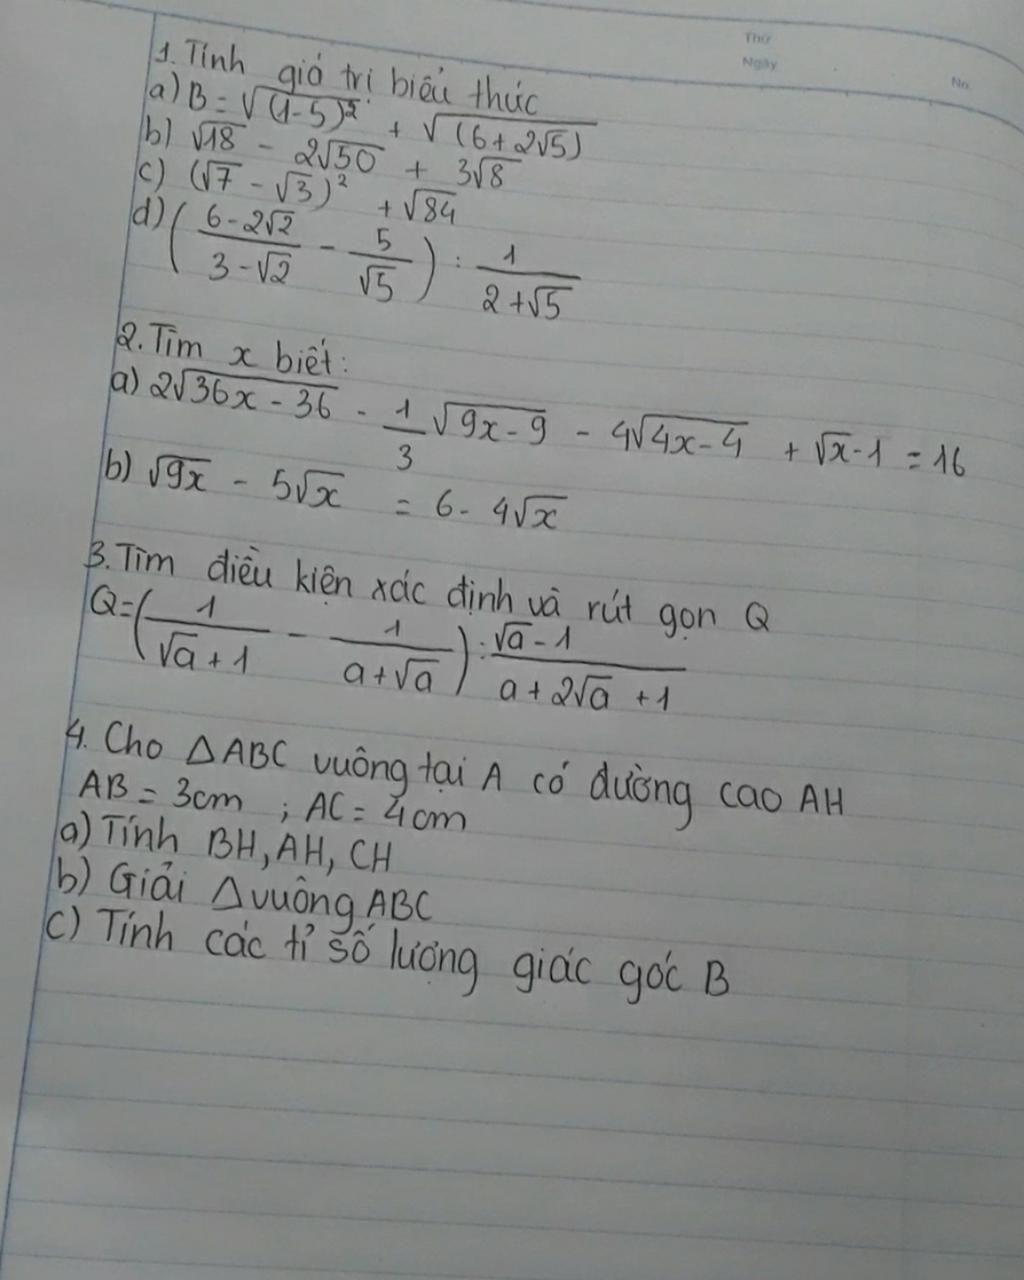 Thứ
Ngày
No.
1. Tính giá trị biểu thức
a) B = √(1-5)² + √(6+2√5)
b) √18 - 2√50 + 3√8
c) (√7 - √3)² + √84
d) (6-2√2/3-√2 - 5/√5) : 1/2+√5
2. Tìm x biết:
a) 2√36x-36 - 1/3√9x-9 - 4√4x-4 + √x-1 = 16
b) √9x - 5√x = 6 - 4√x
3. Tìm điều kiện xác định và rút gọn Q
Q = (1/√a+1 - 1/a+√a) : √a-1/a+2√a+1
4. Cho △ABC vuông tại A có đường cao AH
AB = 3cm ; AC = 4cm
a) Tính BH, AH, CH
b) Giải △vuông ABC
c) Tính các tỉ số lượng giác góc B